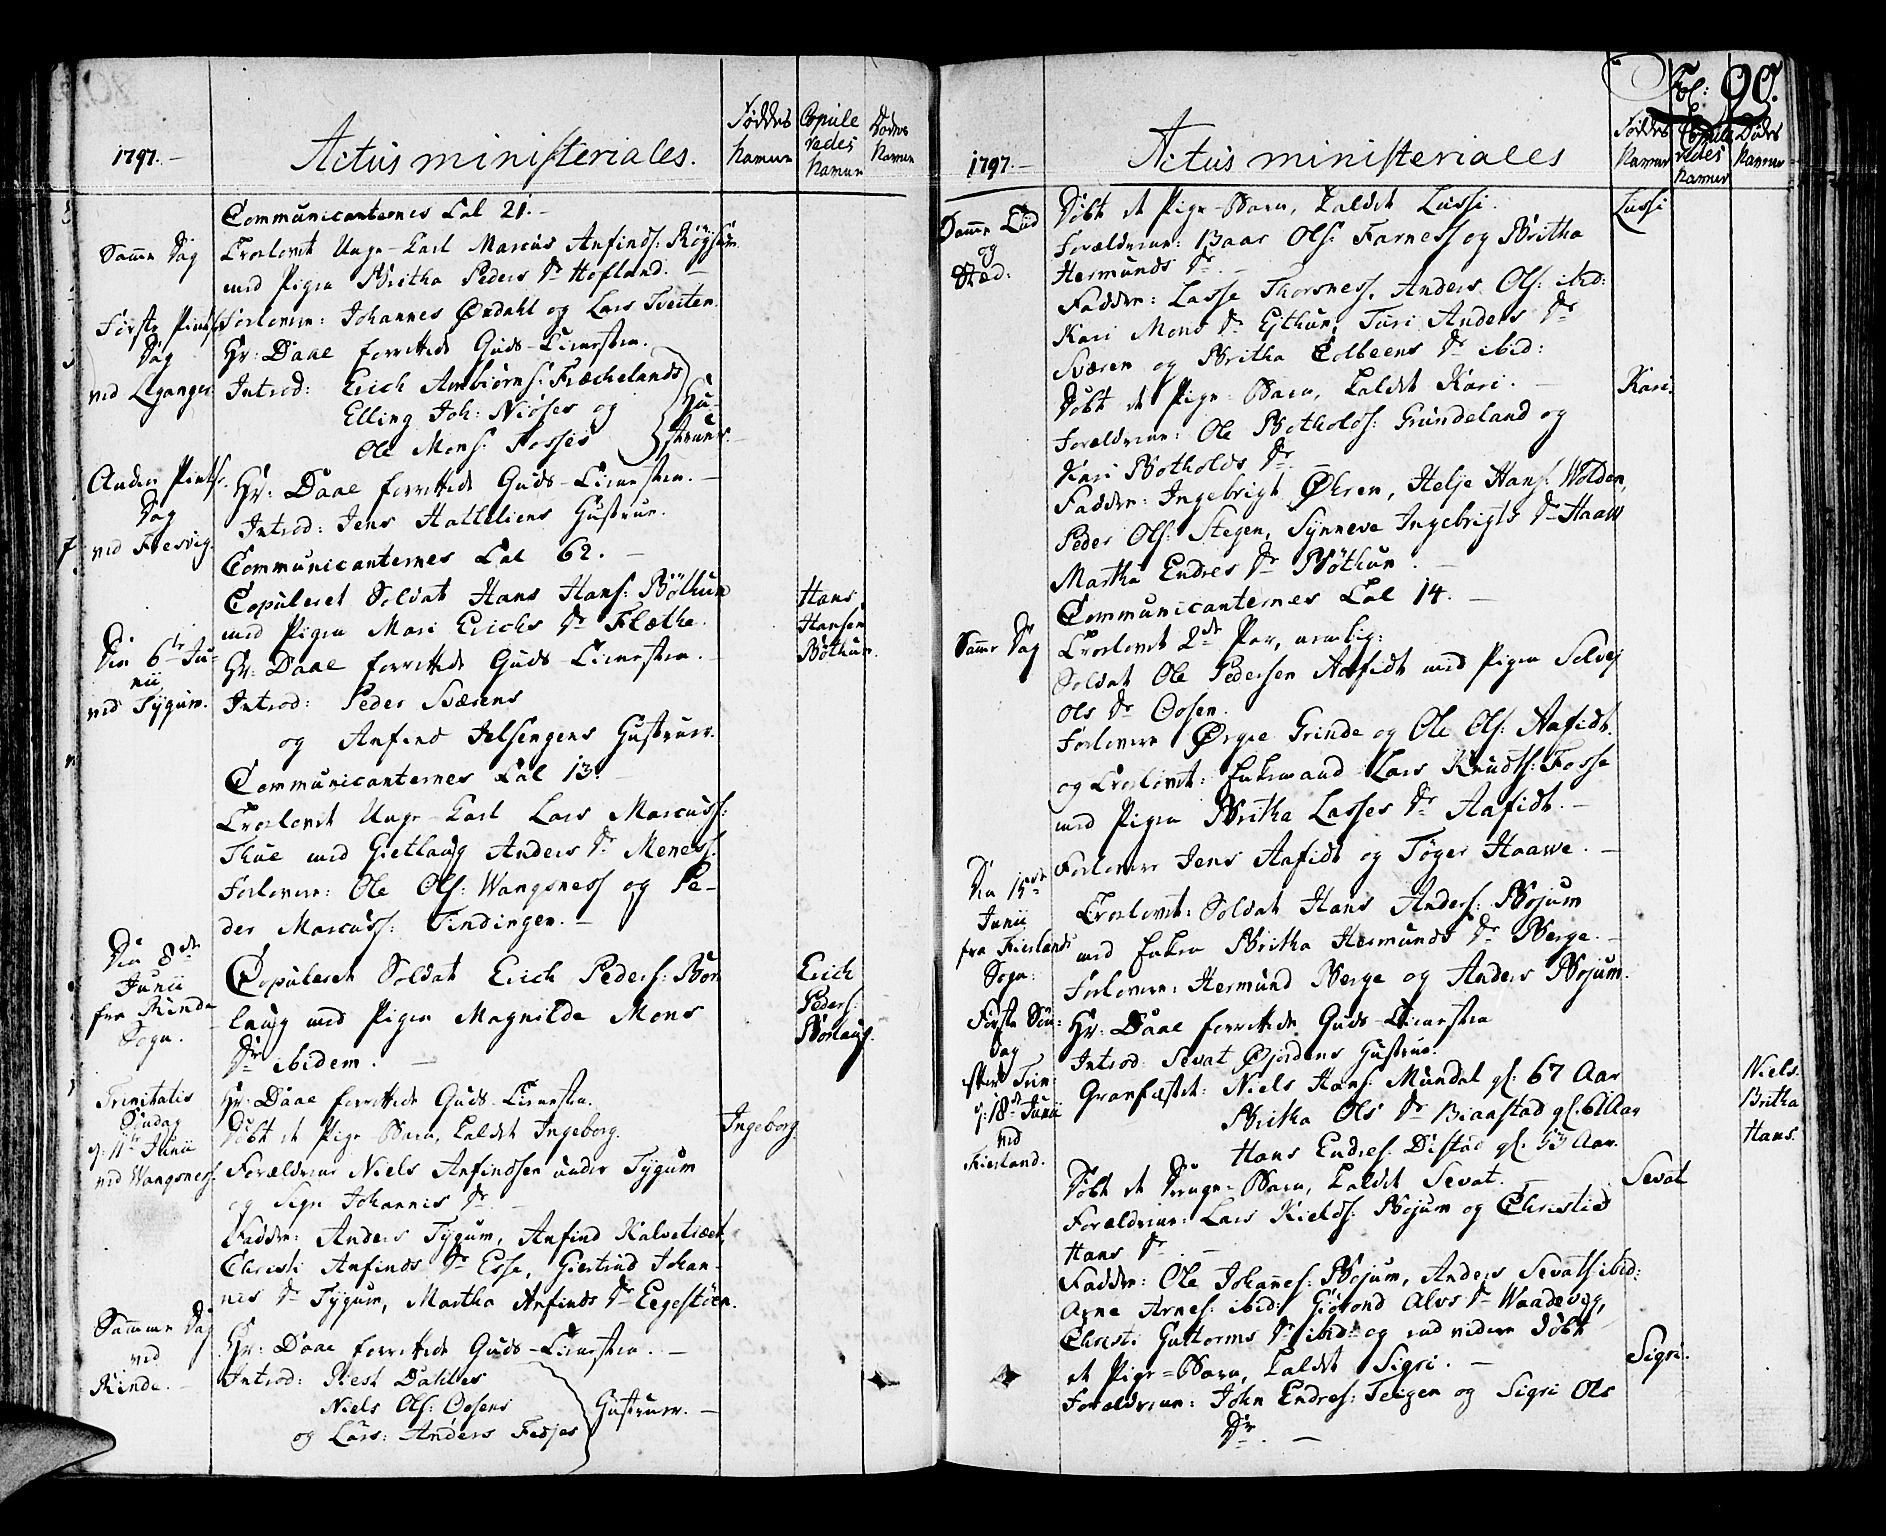 1797.
Actus ministeriales.
Føddes Navne
Copule redes Navne
Dødes Navne
Communicanternes Tal 21.
Samme Dag
Trolovet Unge-Karl Marcus Anfinds:
med Pigen Britha Peders Dr Hofland.
Første Pintse Dag ved Leganger
Forlovere: Johannes Ørdahl og Lars Tveiten
Hr: Daae forrettede Guds-Tienesten.
Introd: Erich Ambiørns: Fræchelands
Elling Joh: Niøses og
Ole Mons: Fosses
Hustruer.
Anden Pintse Dag ved Fresvig.
Hr: Daae forrettede Guds-Tienesten.
Introd: Jens Hatteliens Hustrue.
Communicanternes Tal 62.
Copuleret Soldat Hans Hans: Böthun
med Pigen Mari Erichs Dr Flæthe.
Hans Hansen Böthun.
Din 6te Junii ved Tygum.
Hr: Daae forrettede Guds-Tienesten.
Introd: Peder Sværens
og Anfind Jelsengens Hustruer.
Communicanternes Tal 13.
Trolovet Unge-Karl Lars Marcuss:
Thue med Gietlaug Anders Dr Meness.
Forlovere: Ole Ols: Wangsness og Pe-
der Marcuss: Tindingen.
Din 8de Junii fra Rinde Sogn.
Copuleret Soldat Erich Peders: Bor
laug med Pigen Magnilde Mons
Dr ibidem.
Erich Peders: Borlaug.
Trinitatis Søndag d: 11te Junii ved Wangsness.
Hr: Daae forrettede Guds-Tienesten.
Døbt et Pige-Barn, kaldet Ingeborg.
Ingeborg.
Forældrene Niels Anfindsen under Tygum
og Sign Johannis Dr
Faddere: Anders Tygum, Anfind Kalvetræet,
Christi Anfinds Dr Esse, Giertrud Johan-
nis Dr Tygum, Martha Anfinds Dr Eegestöen.
Samme Dag ved Rinde.
Hr: Daae forrettede Guds-Tienesten.
Introd: Siest Dahles
Niels Ols: Oosens
og Lars: Anders Fedjes
Hustruer.
Fol: 90.
1797.
Actus ministeriales
Føddes Navne
Copule redes Navne
Dødes Navne
Samme Tiid og Stæd:
Døbt et Pige-Barn, kaldet Lussi.
Lussi
Forældrene: Baar Ols: Farness og Britha
Hermunds Dr
Faddere: Lasse Thorsness, Anders Ols: ibid:
Kari Mons Dr Ejthun, Turi Anders Dr
Sværen og Britha Colbeens Dr ibid:
Døbt et Pige-Barn, kaldet Kari.
Kari.
Forældrene: Ole Botholds: Grundeland og
Kari Botholds Dr
Faddere: Ingebrigt Øhren, Helje Hans: Wolden,
Peder Ols: Stegen, Synneva Ingebrigts Dr Haaw
Martha Endres Dr Böthun.
Communicanternes Tal 14.
Samme Dag
Trolovet 2de Par, nemlig:
Soldat Ole Pedersen Aafidt med Pigen Solvej
Ols Dr Oosen.
Forlovere Ørgre Grinde og Ole Ols: Aafidt.
og Trolovet: Enkemand Lars Knudts: Fosse
med Pigen Britha Lasses Dr Aafidt.
Forlovere Jens Aafidt og Töger Haawe.
Din 15de Junii fra Fierlands Sogn:
Trolovet: Soldat Hans Anders: Bojum
med Enken Britha Hermunds Dr Berge.
Forlovere: Hermund Berge og Anders Bojum.
Første Søndag efter Trin: d: 18de Junii ved Fierland.
Hr: Daae forrettede Guds-Tienesten
Introd: Sevat Øjordens Hustrue.
Gravfæstet: Niels Hans: Mundal gl: 67 Aar
Britha Ols Dr Biaastad gl: 61 Aar
Hans Endres: Distad gl: 53 Aar.
Niels.
Britha
Hans.
Døbt et Drenge-Barn, kaldet Sevat.
Sevat
Forældrene: Lars Kields: Bojum og Christid
Hans Dr
Faddere: Ole Johannes: Bojum, Anders Sevats: ibid:
Arne Arnes: ibid: Giörond Alvs Dr Waadevig,
Christi Guttorms Dr ibid: og end videre døbt
et Pige-Barn, kaldet Sigri.
Sigri.
Forældrene: John Endres: Teigen og Sigri Ols
Dr.